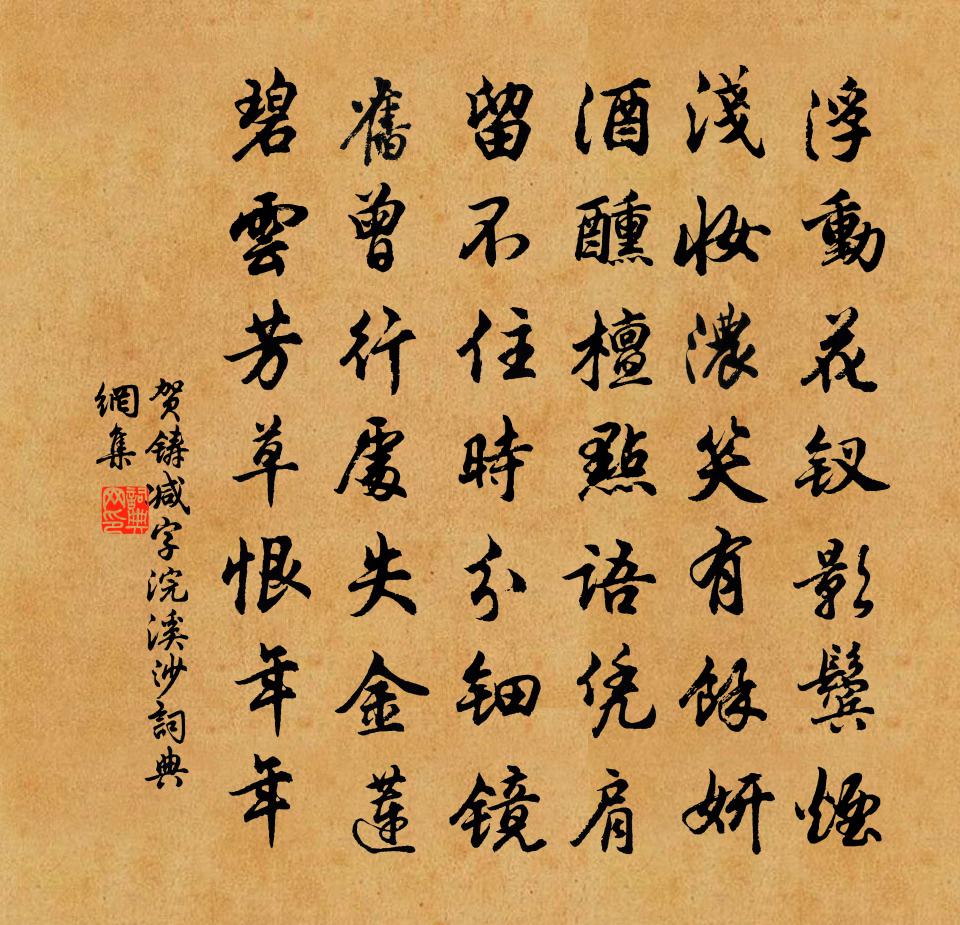 浮動花釵影鬢煙
淺妝濃笑有餘妍
酒醺檀點語凭肩
留不住時分鈿鏡
舊曾行處失金蓮
碧雲芳草恨年年
贺鑄减字浣溪沙詞典
網集
詞典
网印